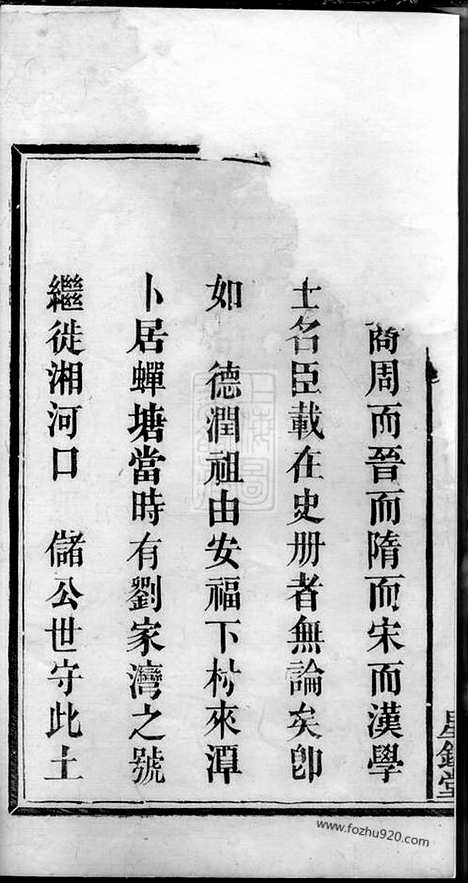 商周而晉而隋而宋而漢學
士名臣載在史册者無論矣卽
如　德潤祖由安福下村來潭
卜居蟬塘當時有劉家灣之號
繼徙湘河口　儲公世守此土
www.fozhu920.com